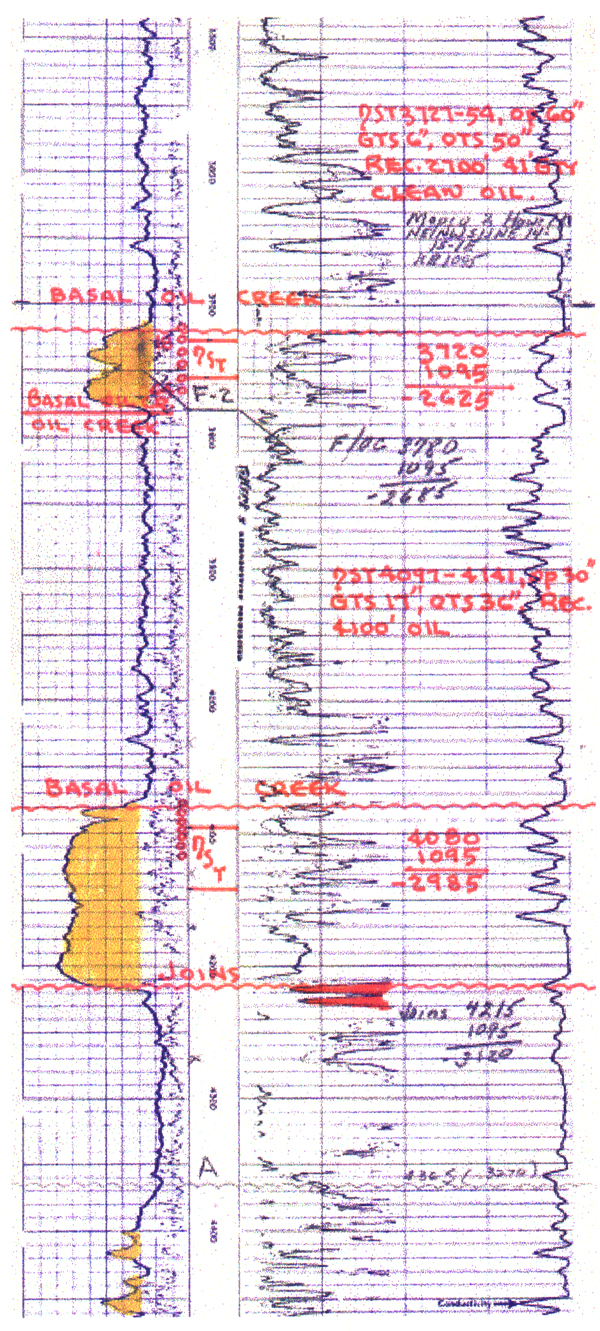 DST 3727-54, OP 60"
GTS 6", OTS 50"
REC. 2700' 41 GTY
CLEAN OIL.
KB 1095
3700
BASAL OIL CREEK
3720
1095
-2625
DST
F-2
BASAL
OIL CREEK
3800
F/OC 3780
1095
-2685
DST 4097-4141, OP 30"
GTS 17", OTS 36" REC.
4100' OIL
4000
BASAL OIL CREEK
4080
1095
-2985
DST
JOINS
Joins 4215
1095
-3120
4300
A
4365 (-3270)
4400
Conductivity